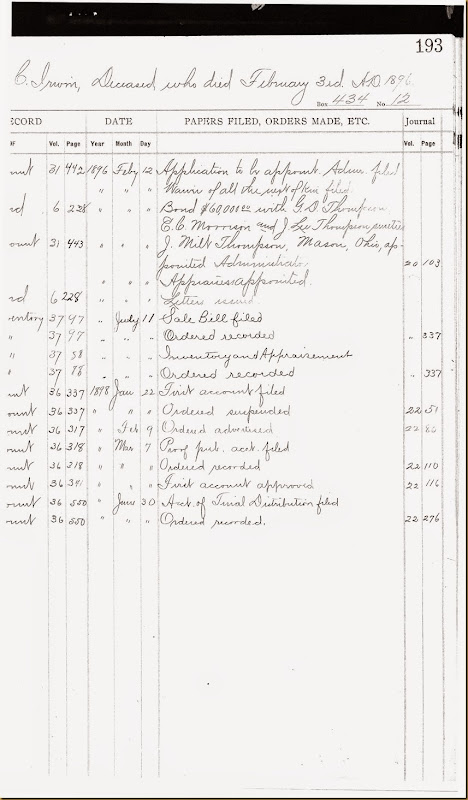 193
C. Irwin, Deceased who died February 3rd. A.D. 1896.
Box 434 No. 12
ECORD DATE PAPERS FILED, ORDERS MADE, ETC. Journal
OF Vol. Page Year Month Day Vol. Page
ount 31 442 1896 Feby 12 Application to be appoint. Admr. filed
" " " Waiver of all the next of kin filed
rd 6 228 " " " Bond $60,000.00 with G.D. Thompson
E.C. Morrison and J Lee Thompson sureties
ount 31 443 " " " J. Milt Thompson, Mason, Ohio, ap-
pointed Administrator 20 103
" " " Appraisers appointed.
rd 6 228 " " " Letters issued.
entory 37 97 " July 11 Sale Bill filed
" 37 97 " " " Ordered recorded " 337
" 37 58 " " " Inventory and Appraisement
" 37 78 " " " Ordered recorded " 337
unt 36 337 1898 Jan 22 First account filed
ount 36 337 " " " Ordered suspended 22 51
ount 36 317 " Feb 9 Ordered advertised 22 80
ount 36 318 " Mar 7 Proof pub. acct. filed
unt 36 318 " " " Ordered recorded 22 110
ount 36 341 " " " First account approved 22 116
ount 36 550 " June 30 Acct. of Final Distribution filed
ount 36 550 " " " Ordered recorded. 22 276